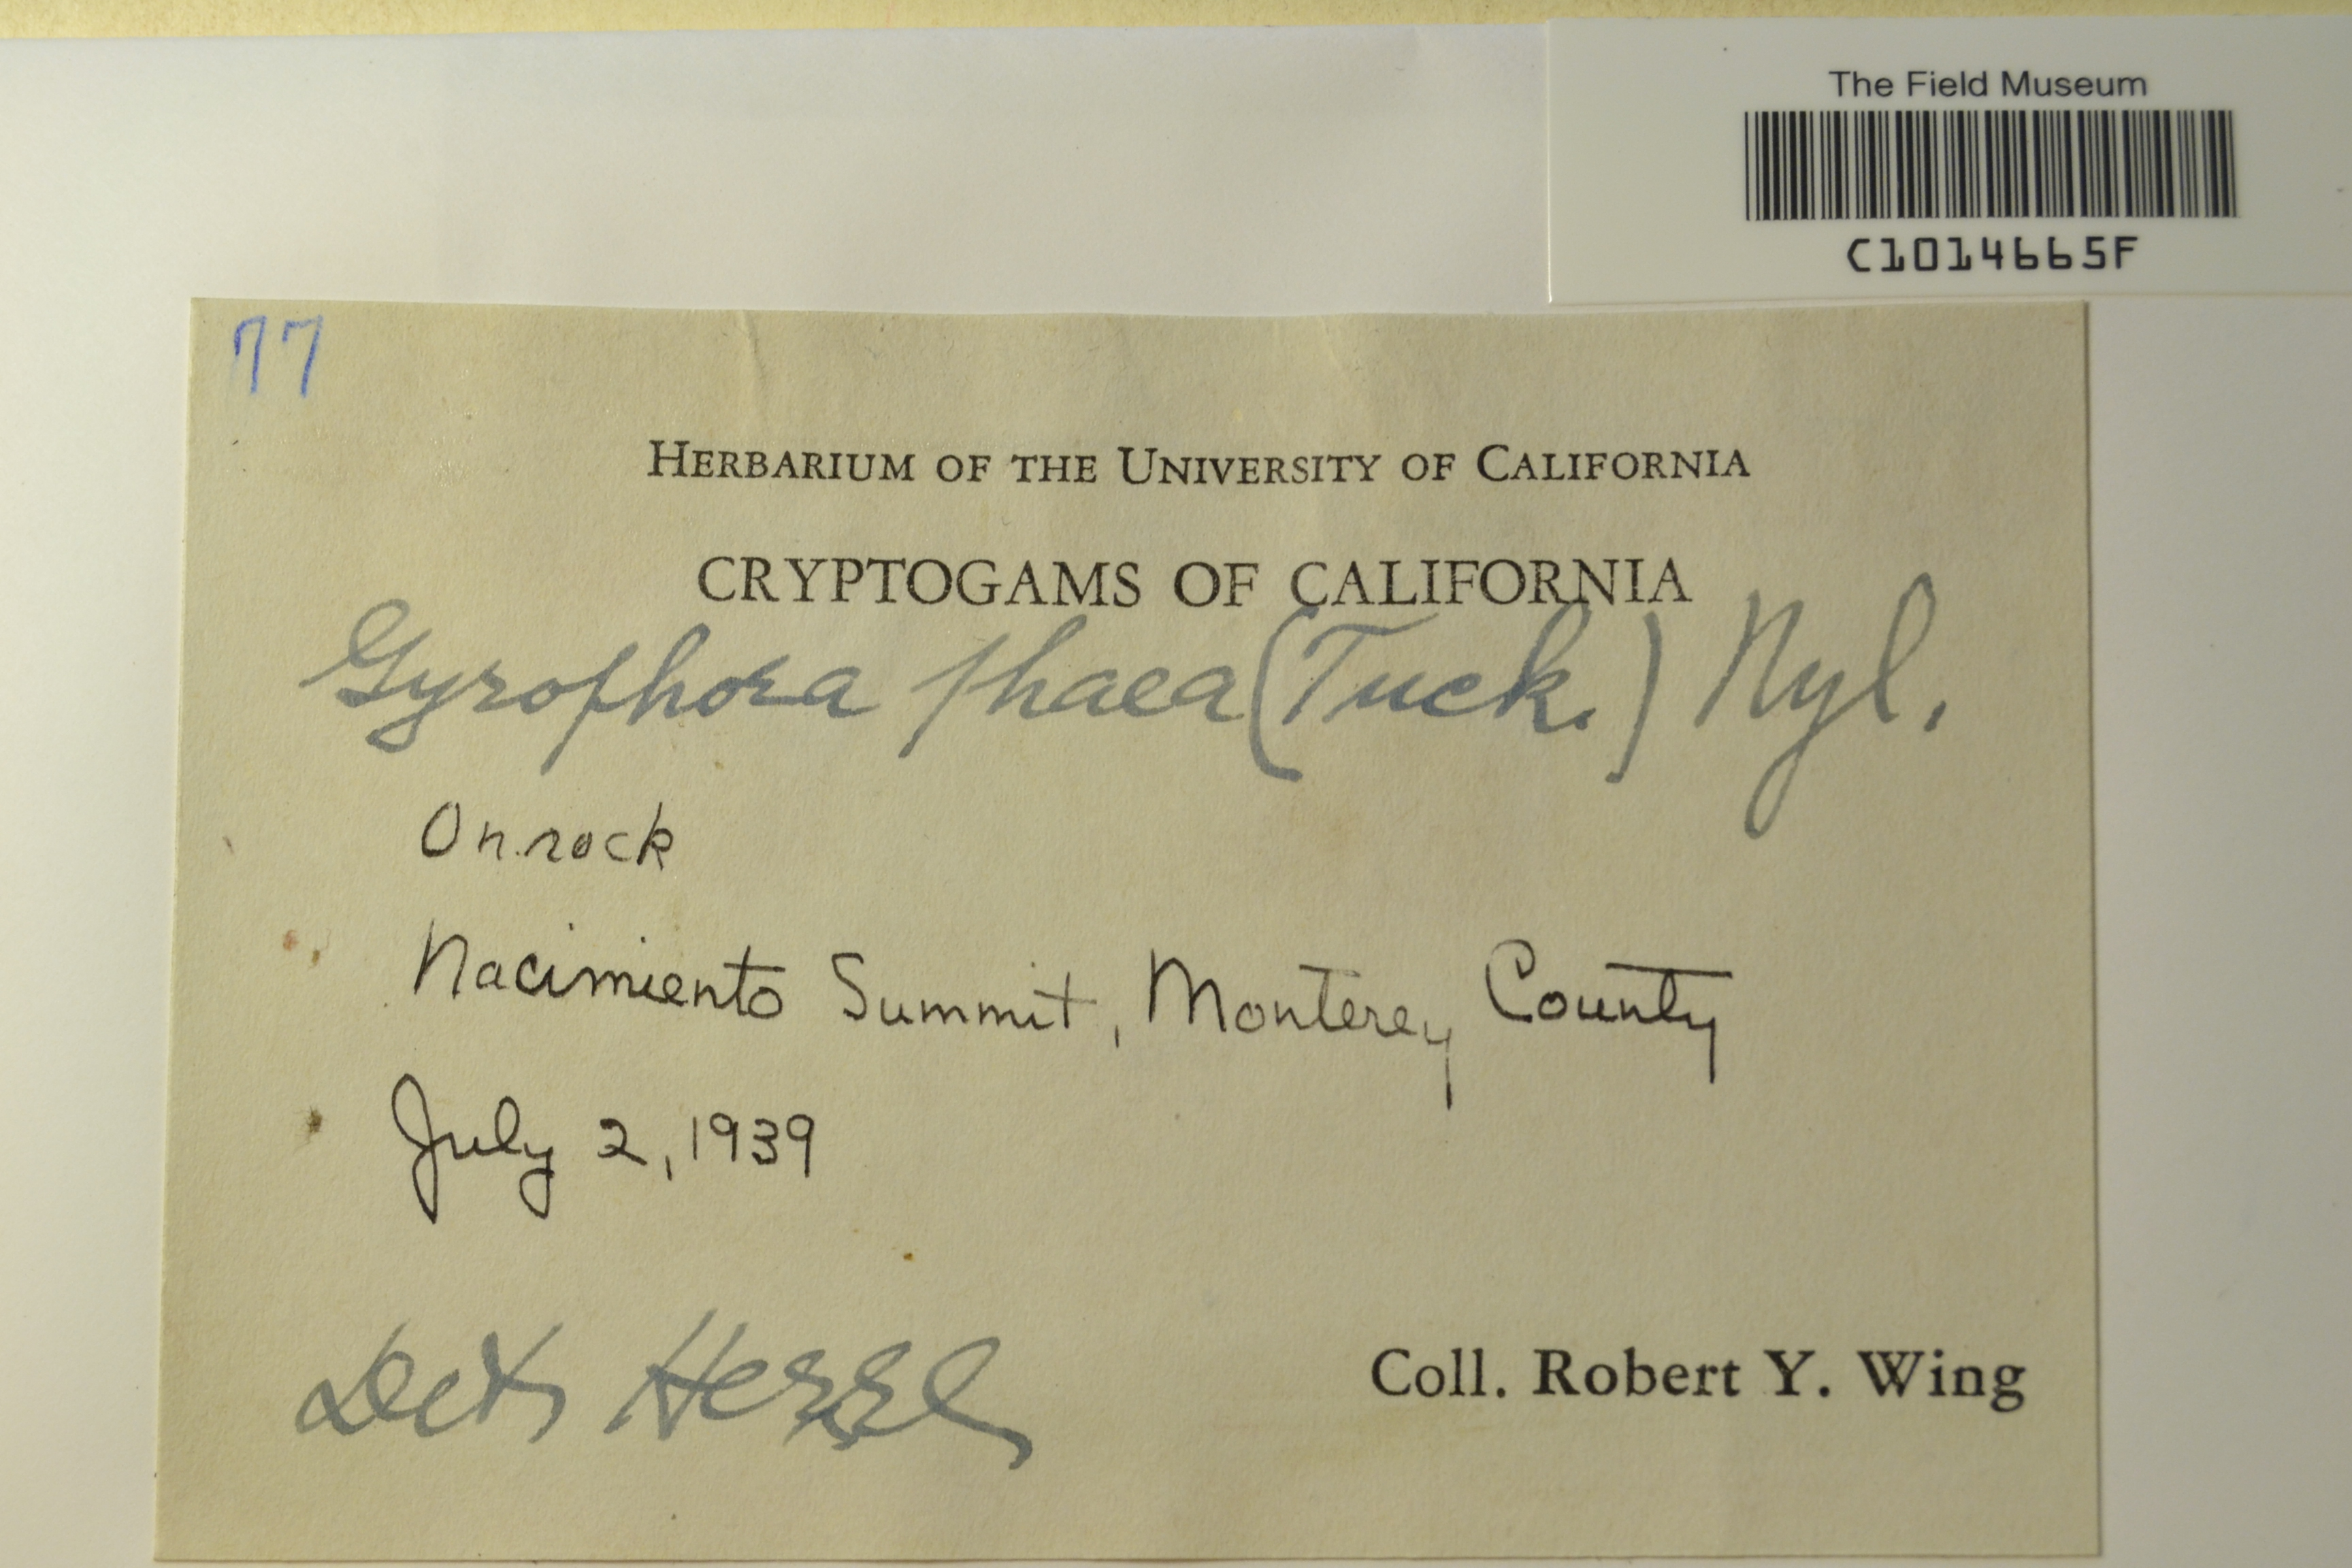 The Field Museum
C1014665F
77
HERBARIUM OF THE UNIVERSITY OF CALIFORNIA
CRYPTOGAMS OF CALIFORNIA
Gyrophora phaea (Tuck.) Nyl.
On rock
Nacimiento Summit, Monterey County
July 2, 1939
Det. Herre
Coll. Robert Y. Wing